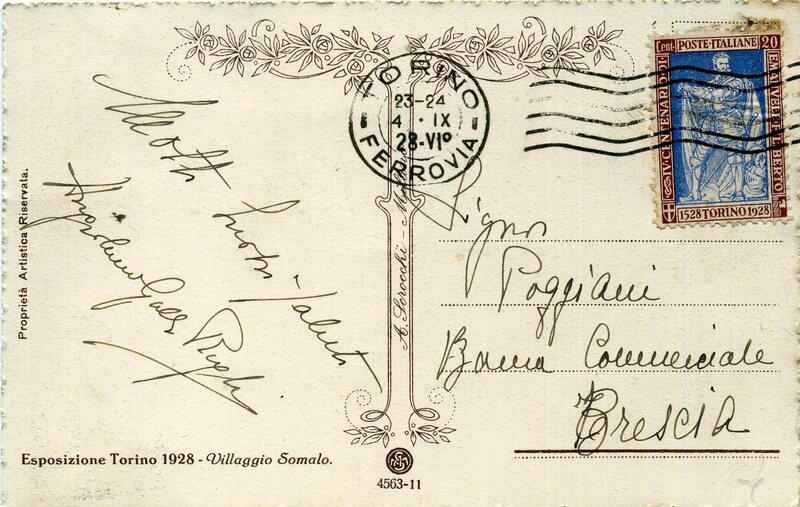 Proprietà Artistica Riservata.
Molti
saluti
TORINO
23-24
4 · IX
28·VIº
FERROVIA
Cent. POSTE·ITALIANE 20
IV·CENTENARIO·DI
EMANVELE·FILIBERTO
1528 TORINO 1928
Signor
Poggiani
Banca Commerciale
Brescia
A. Scrocchi - Milano
Esposizione Torino 1928 - Villaggio Somalo.
4563-11